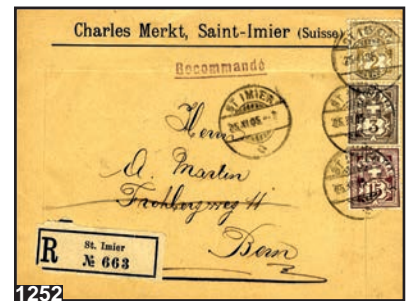 Charles Merkt, Saint-Imier (Suisse)
Recommandé
ST. IMIER
25.XI.05
3
15
Herrn
A. Martin
Frohbergweg 11
Bern
R
St. Imier
№ 663
1252